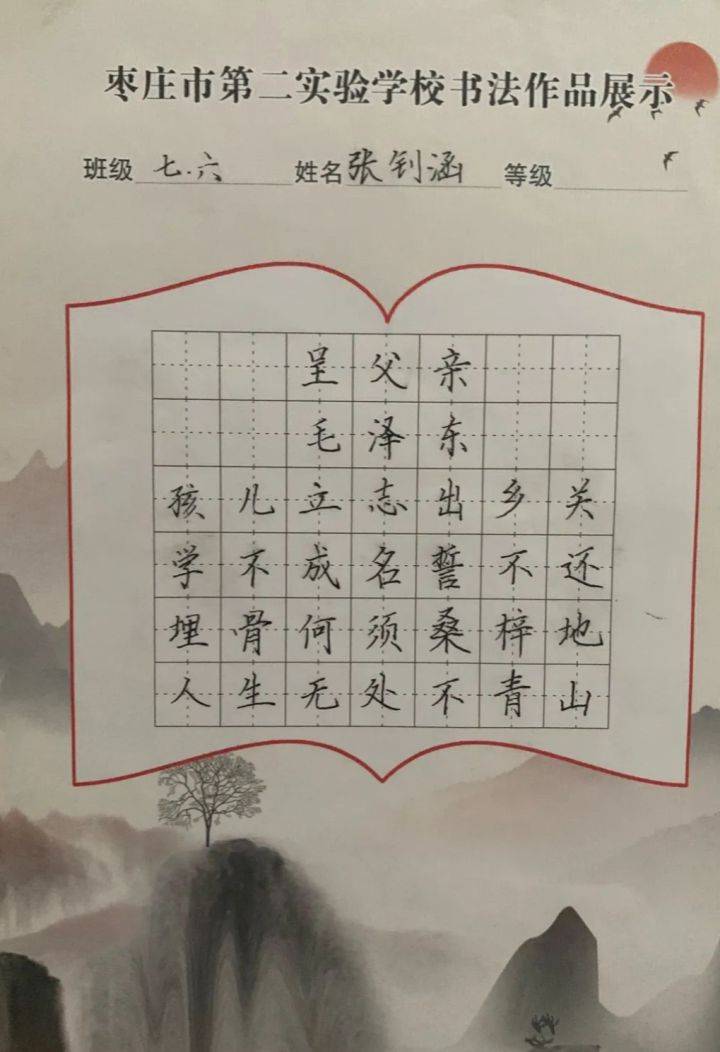 枣庄市第二实验学校书法作品展示
班级 七.六 姓名 张钊涵 等级
呈父亲
毛泽东
孩儿立志出乡关
学不成名誓不还
埋骨何须桑梓地
人生无处不青山